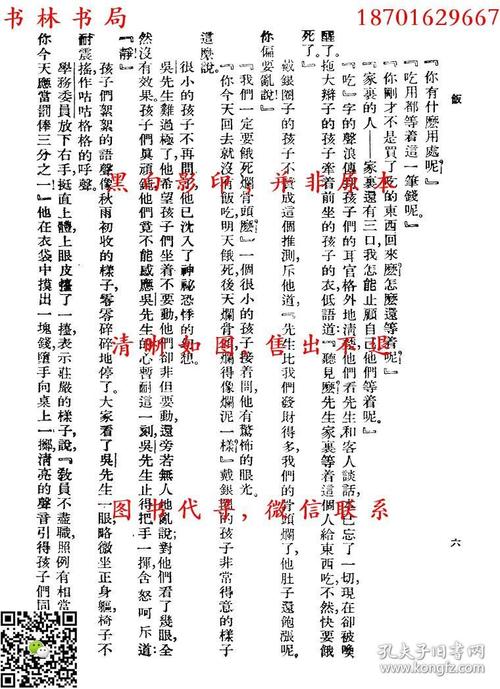 书林书局
18701629667
飯
六
『你有什麼用處呢』
『吃用都等着這一筆錢呢』
『你剛才不是買了吃的東西回來麼怎麼還等着呢』
『家裏的人——家裏還有三口我怎能止顧自己他們等着呢』
『吃』字的聲浪傳
孩子們的耳官格外地清
們看先生和客人談話
已忘了一切現在卻被喚
醒了拖大辮子的孩子牽着前坐的孩子的衣低語道『聽見麼先生家裏等着這個人給東西吃不然快要餓
死了』
戴銀圈子的孩子不贊成這個推測斥他道『先生比我們發財得多我們的骨頭爛了他肚子還飽漲呢』
你偏要亂說』
『我們一定要餓死爛骨頭麼』一個很小的孩子接着問他有驚怖的眼光。
『你今天回去就沒有飯吃明天餓死後天爛骨
爛得像爛泥一樣』戴銀
的孩子非常得意的樣子
這麼說。
很小的孩子不再問
他已沈入了神祕恐怖的
想。
吳先生難過極了他希望孩子們坐着不要動他們卻非但要動還旁若無人他亂說對他們看了幾眼全
然沒有效果孩子們真頑
他們竟不能感應吳先生
心暫耐這一刻吳先生止得把手一揮含怒呵斥道:
『靜』
孩子們絮絮的語聲像秋雨初收的樣子零零碎碎地停了。大家看了吳先生一眼略微坐正身軀椅子不
耐震搖作咕咕格格的呼聲。
學務委員放下右手挺直上體上眼皮擡了一擡表示莊嚴的樣子說『敎員不盡職照例有相當
你今天應當罰俸三分之一』他在衣袋中摸出一塊錢隨手向桌上一擲清亮的聲音引得孩子們同
黑白影印，并非原本
清晰如图，售出不退
图书代寻，微信联系
孔夫子旧书网